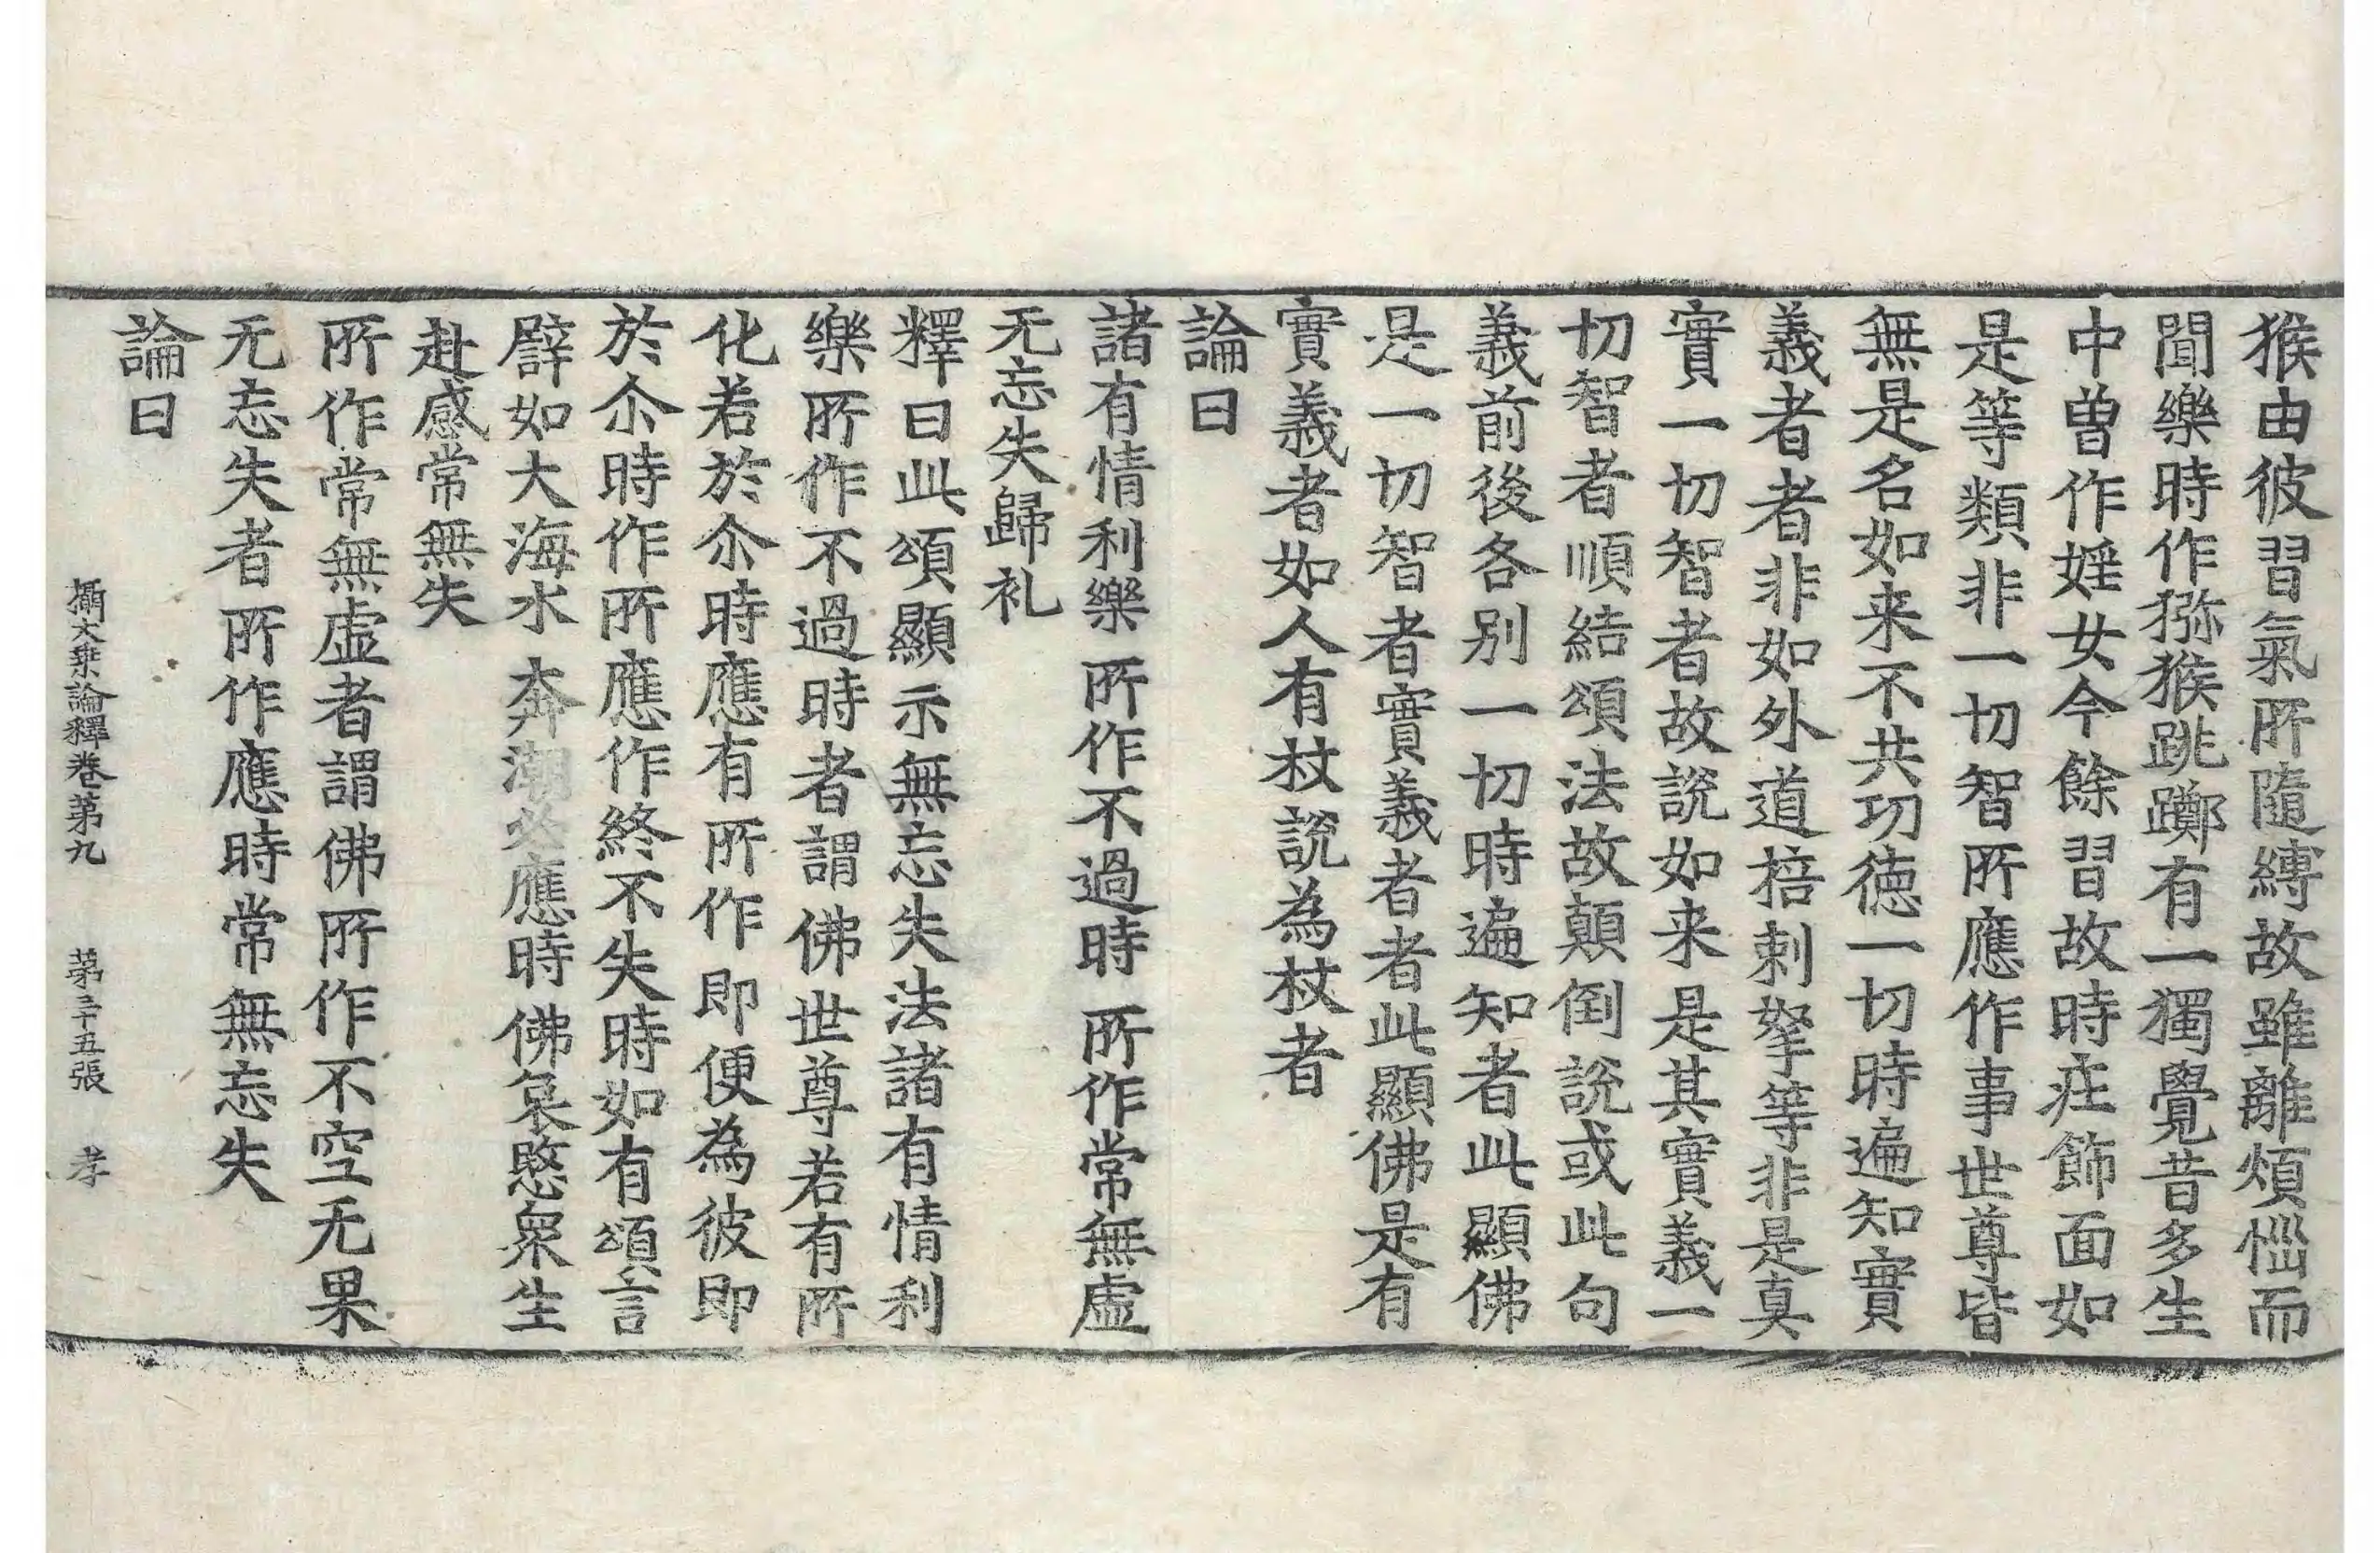 猴由彼習氣所隨縛故雖離煩惱而
聞樂時作猕猴跳躑有一獨覺昔多生
中曽作婬女今餘習故時庄飾面如
是等類非一切智所應作事世尊皆
無是名如来不共功德一切時遍知實
義者者非如外道棓剌拏等非是真
實一切智者故說如来是其實義一
切智者順結頌法故顛倒說或此句
義前後各别一切時遍知者此顯佛
是一切智者實義者者此顯佛是有
實義者如人有杖說為杖者
論曰
諸有情利樂 所作不過時 所作常無虛
无忘失歸礼
釋曰此頌顯示無忘失法諸有情利
樂所作不過時者謂佛世尊若有所
化若於尒時應有所作即便為彼即
於尒時作所應作終不失時如有頌言
譬如大海水 奔潮必應時 佛哀愍衆生
赴感常無失
所作常無虛者謂佛所作不空无果
无忘失者所作應時常無忘失
論曰
攝大乗論釋卷第九 第三十五張 孝